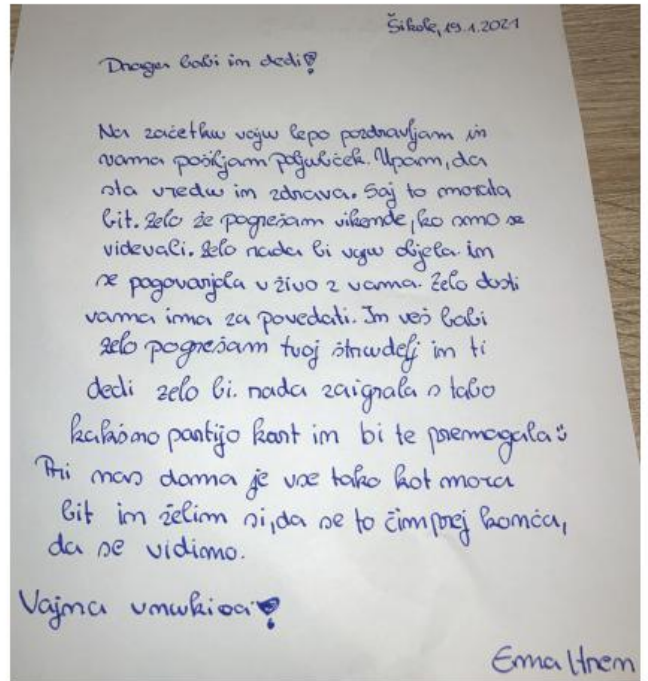 Šikole, 19.1.2021
Draga babi in dedi!
Na začetku vaju lepo pozdravljam in
vama pošiljam poljubček. Upam, da
sta vredu in zdrava. Saj to morata
bit. Zelo že pogrešam vikende, ko smo se
videvali. Zelo rada bi vaju objela in
se pogovarjala v živo z vama. Zelo dosti
vama imam za povedati. In veš babi
zelo pogrešam tvoj štrudelj in ti
dedi zelo bi rada zaigrala s tabo
kakšno partijo kart in bi te premagala
Pri nas doma je vse tako kot mora
bit in želim si, da se to čimprej konča,
da se vidimo.
Vajina vnukica!
Ema